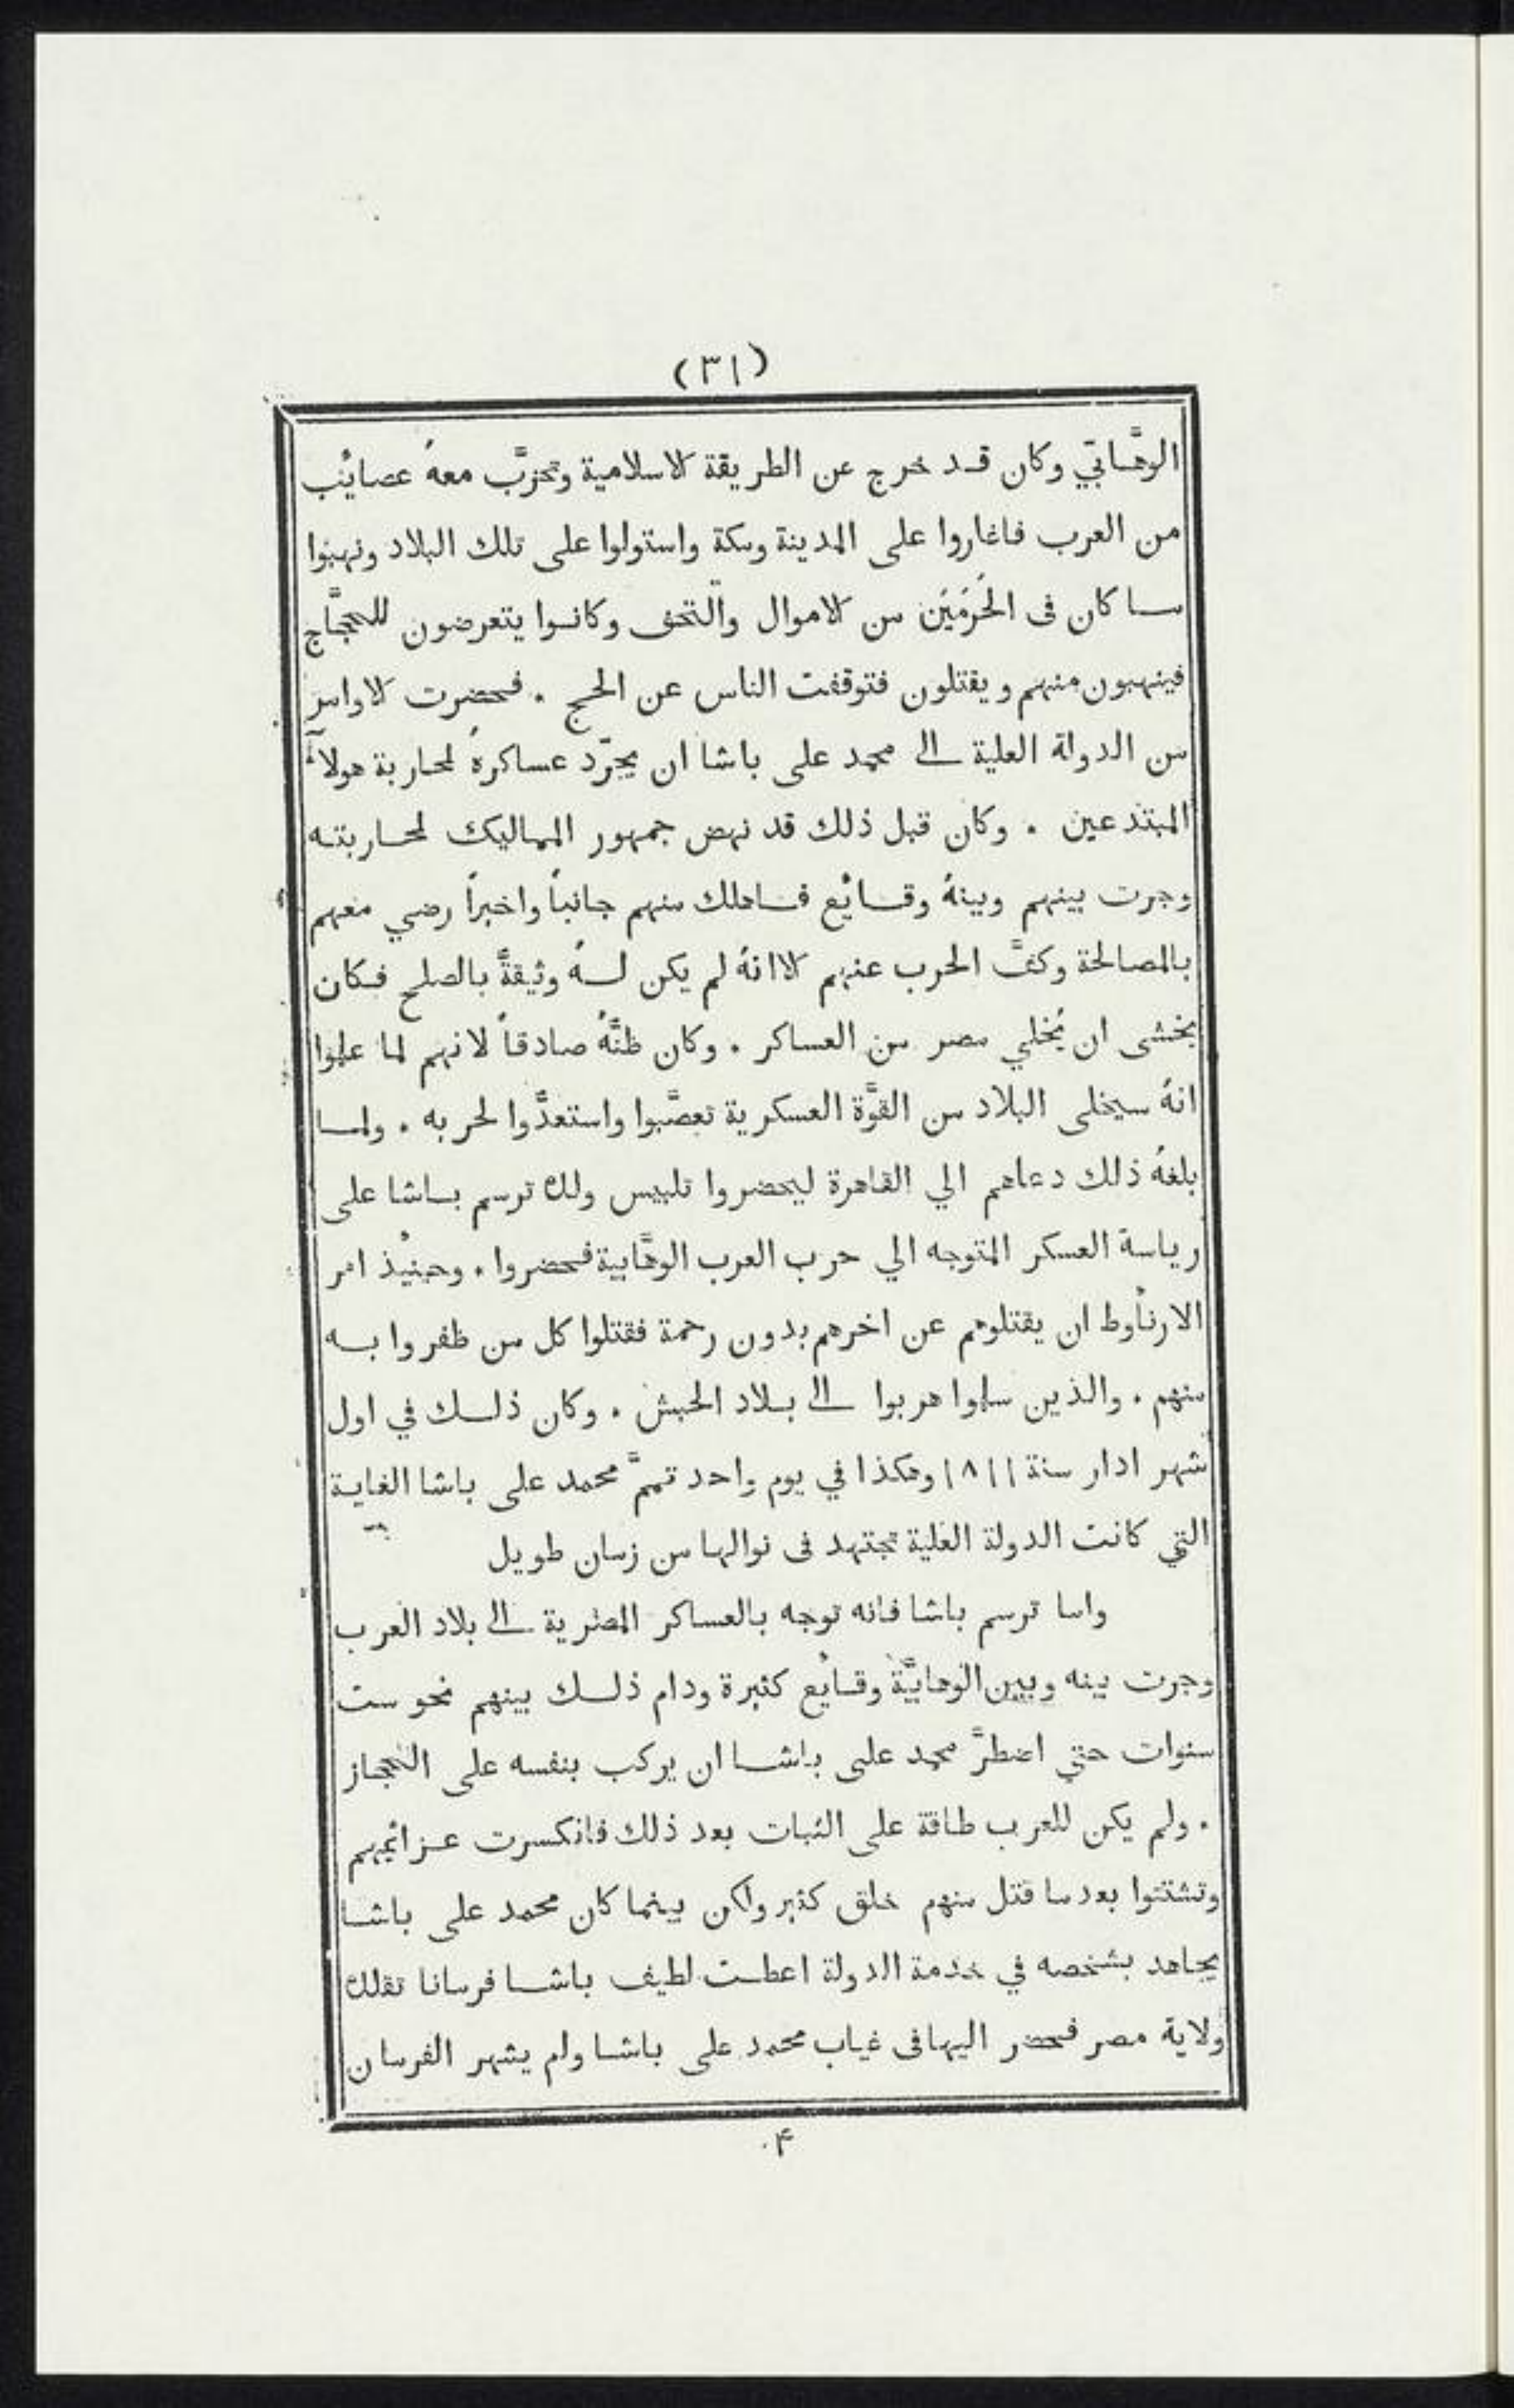 (٣١)
الوهَّابيّ وكان قد خرج عن الطريقة الاسلامية وتحزَّب معهُ عصائب
من العرب فاغاروا على المدينة ومكة واستولوا على تلك البلاد ونهبوا
ما كان فى الحَرَمَيْن من الاموال والتحف وكانوا يتعرضون للحجَّاج
فينهبون منهم ويقتلون فتوقفت الناس عن الحج . فحضرت الاوامر
من الدولة العلية الى محمد على باشا ان يجرّد عساكرهُ لمحاربة هولآء
المبتدعين . وكان قبل ذلك قد نهض جمهور المماليك لمحاربته
وجرت بينهم وبينهُ وقائع فاهلك منهم جانباً واخيراً رضي معهم
بالمصالحة وكفَّ الحرب عنهم الا انهُ لم يكن لهُ وثيقةٌ بالصلح فكان
يخشى ان يُخلي مصر من العساكر . وكان ظنُّهُ صادقاً لانهم لما علموا
انهُ سيخلى البلاد من القوَّة العسكرية تعصَّبوا واستعدُّوا لحربه . ولما
بلغهُ ذلك دعاهم الي القاهرة ليحضروا تلبيس ولك ترسم باشا على
رياسة العسكر المتوجه الي حرب العرب الوهَّابية فحضروا . وحينئذ امر
الارناؤط ان يقتلوهم عن اخرهم بدون رحمة فقتلوا كل من ظفروا به
منهم . والذين سلموا هربوا الى بلاد الحبش . وكان ذلك في اول
شهر ادار سنة ١٨١١ وهكذا في يوم واحد تممَّ محمد على باشا الغاية
التي كانت الدولة العلية تجتهد فى نوالها من زمان طويل
واما ترسم باشا فانه توجه بالعساكر المصرية الى بلاد العرب
وجرت بينه وبين الوهابيَّة وقائع كثيرة ودام ذلك بينهم نحو ست
سنوات حتي اضطرَّ محمد على باشا ان يركب بنفسه على الحجاز
. ولم يكن للعرب طاقة على الثبات بعد ذلك فانكسرت عزائمهم
وتشتتوا بعد ما قتل منهم خلق كثير ولكن بينما كان محمد على باشا
يجاهد بشخصه في خدمة الدولة اعطت لطيف باشا فرمانا تقلك
ولاية مصر فحضر اليها فى غياب محمد على باشا ولم يشهر الفرمان
۴